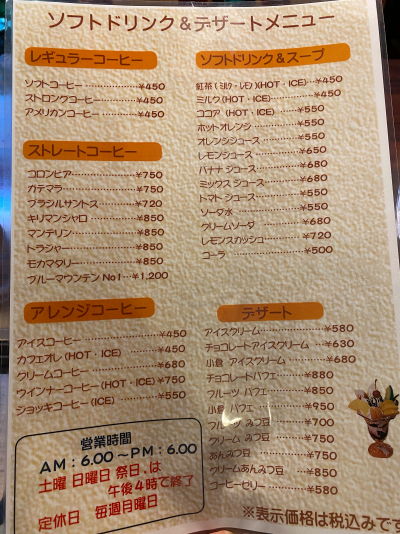 ソフトドリンク＆デザートメニュー
レギュラーコーヒー
ソフトコーヒー ………………¥450
ストロングコーヒー…………¥450
アメリカンコーヒー …………¥450
ストレートコーヒー
コロンビア……………………¥750
ガテマラ………………………¥750
ブラジルサントス……………¥720
キリマンジャロ ………………¥850
マンデリン……………………¥850
トラジャー……………………¥850
モカマタリー…………………¥850
ブルーマウンテン No1…¥1,200
アレンジコーヒー
アイスコーヒー ………………¥450
カフェオレ(HOT・ICE) ……¥450
クリームコーヒー ……………¥680
ウインナーコーヒー(HOT・ICE)¥750
ショッキコーヒー(ICE)………¥550
営業時間
AM：6.00～PM：6.00
土曜 日曜日 祭日.は
午後4時で終了
定休日 毎週月曜日
ソフトドリンク＆スープ
紅茶(ミルク・レモン)(HOT・ICE)…¥450
ミルク(HOT・ICE)…………¥450
ココア (HOT・ICE) ………¥550
ホットオレンジ ………………¥550
オレンジジュース ……………¥550
レモンジュース ………………¥650
バナナ ジュース………………¥680
ミックス ジュース……………¥680
トマト ジュース………………¥550
ソーダ水 ……………………¥550
クリームソーダ ………………¥680
レモンスカッシュ……………¥720
コーラ ………………………¥500
デザート
アイスクリーム………………¥580
チョコレートアイスクリーム …¥630
小倉 アイスクリーム …………¥680
チョコレートパフェ……………¥880
フルーツ パフェ………………¥850
小倉 パフェ …………………¥950
フルーツ みつ豆 ……………¥700
クリーム みつ豆 ……………¥750
あんみつ豆 …………………¥750
クリームあんみつ豆 …………¥850
コーヒーゼリー ………………¥580
※表示価格は税込みです